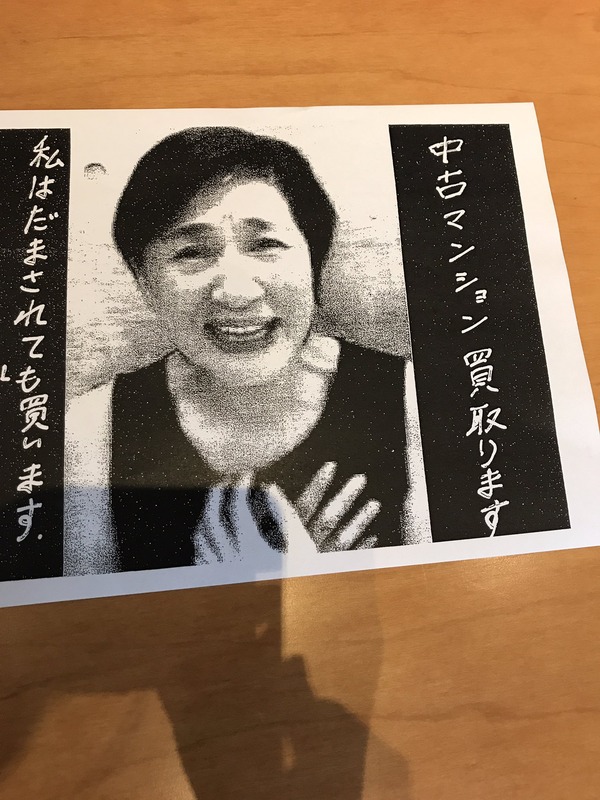 中古マンション買取ります
私はだまされても買います.